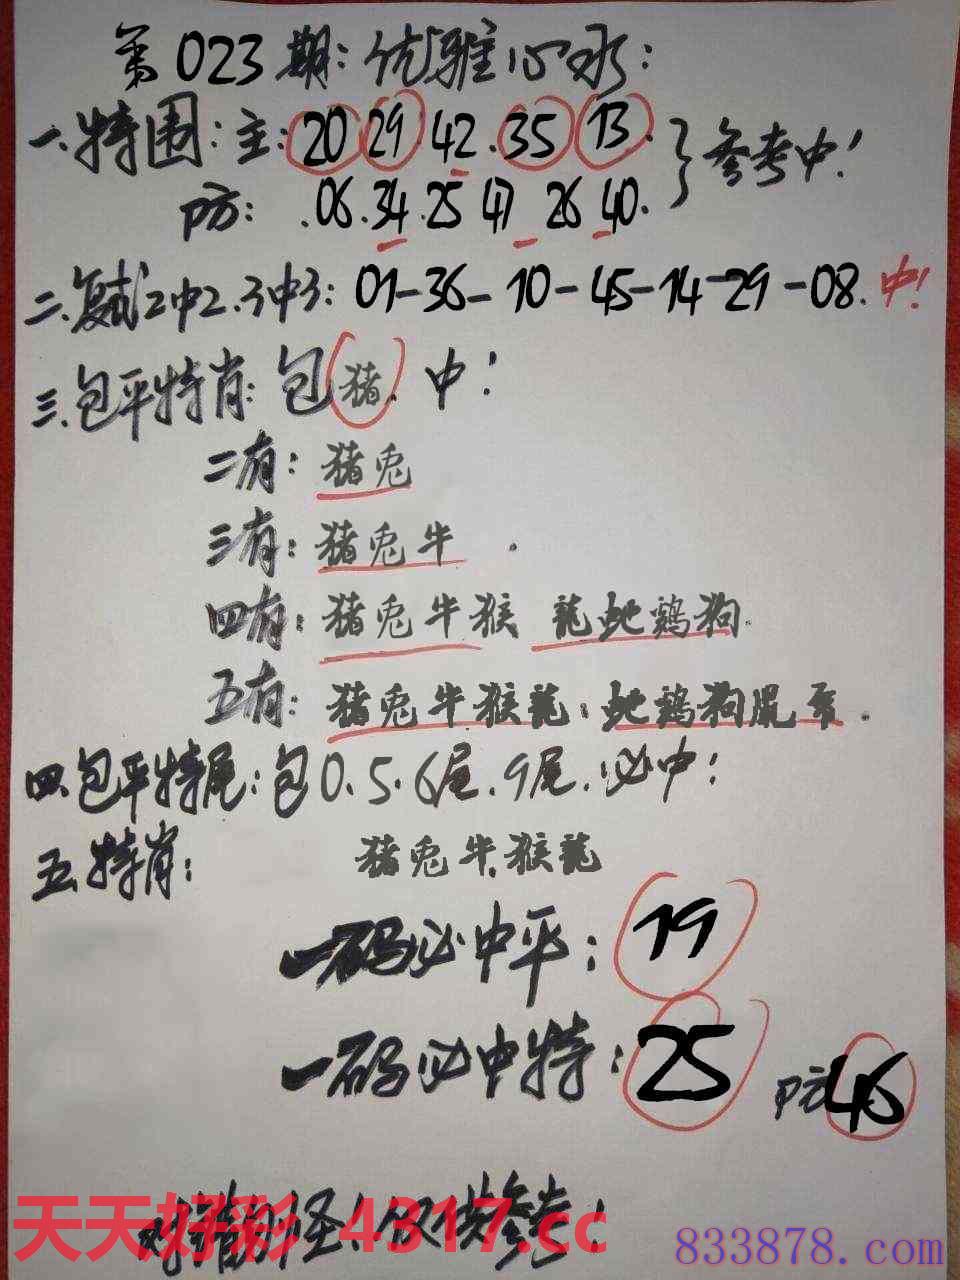 第023期:优雅心水:
一.特围:主:20 29.42.35 13.
防: .06.34.25 47 26 40.
参考中!
二.复式2中2.3中3: 01-36-10-45-14-29-08.中!
三.包平特肖:包猪.中!
二有:猪兔
三有:猪兔牛.
四有:猪兔牛猴 龍蛇鷄狗.
五有:猪兔牛猴龍:蛇鷄狗鼠
四.包平特尾:包0.5.6尾.9尾.必中!
五.特肖: 猪兔牛.猴龍
一码必中平: 19
一码必中特: 25 防46
仅供参考!
天天好彩 4317.cc
833878.com